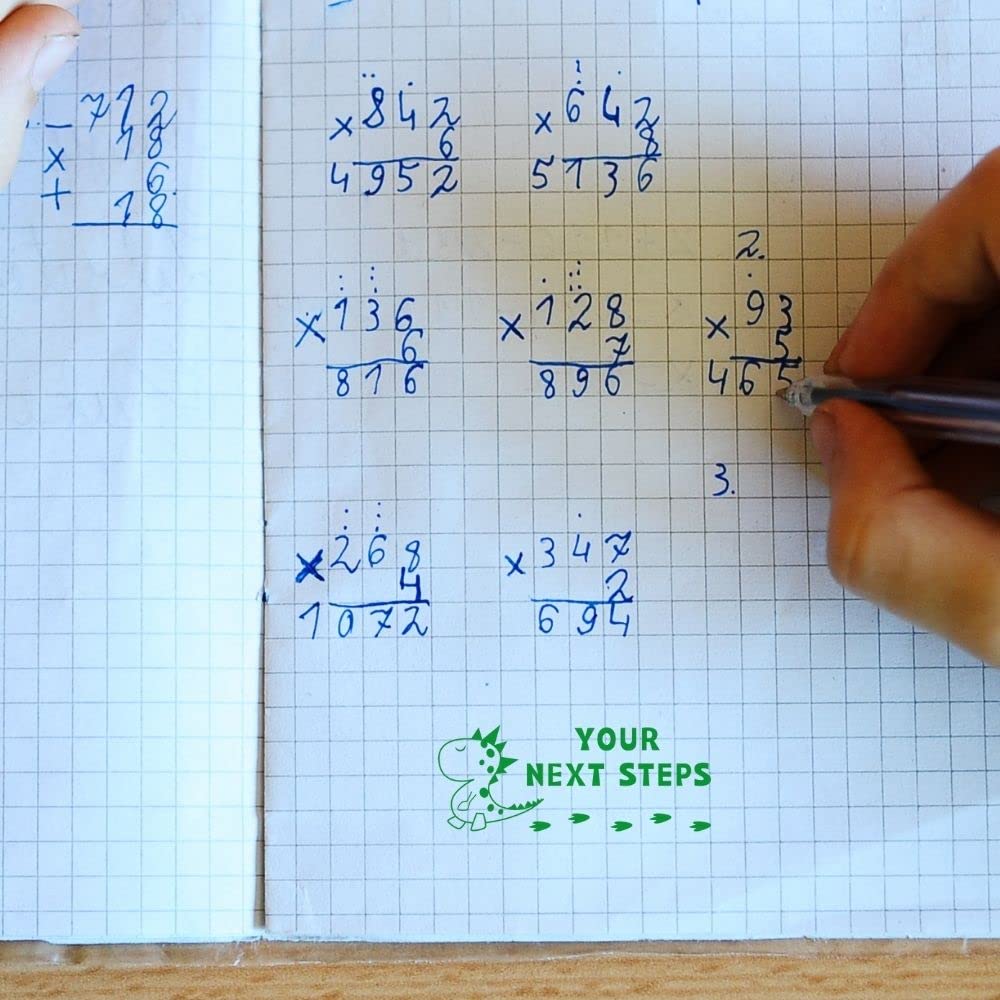 - 712
x 18
6
+ 18
x 842
6
4952
x 642
8
5136
x 136
6
816
x 128
7
896
2.
x 93
5
465
3.
x 268
4
1072
x 347
2
694
YOUR
NEXT STEPS